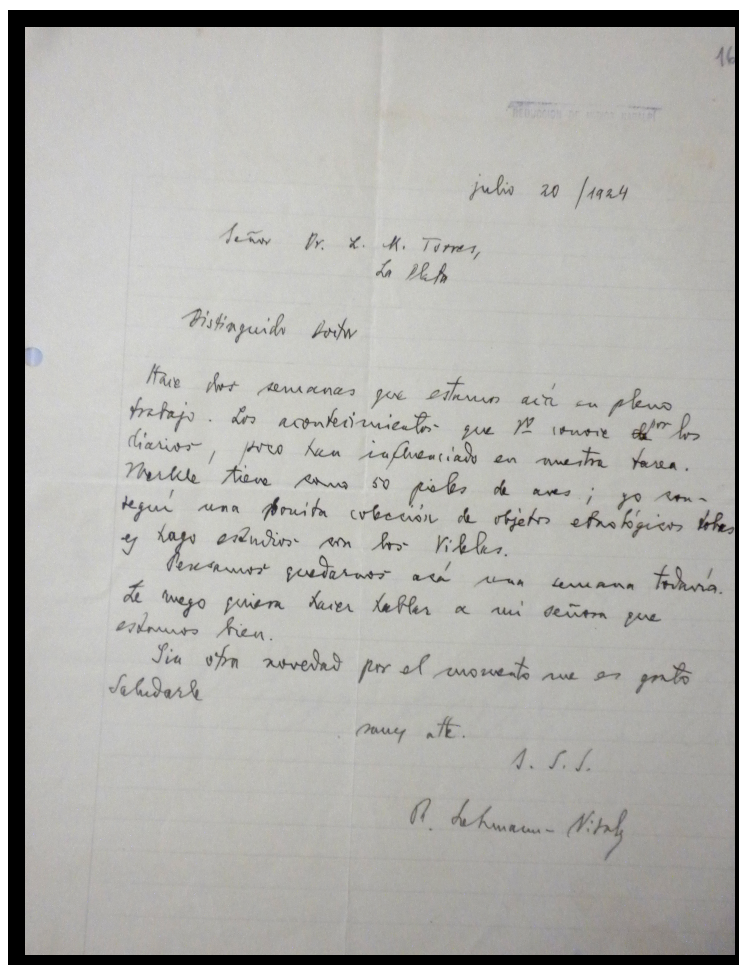 16
julio 20 / 1924
Señor Dr. L. M. Torres,
La Plata
Distinguido Doctor
Hace dos semanas que estamos acá en pleno
trabajo. Los acontecimientos que Vd conoce por los
diarios, poco han influenciado en nuestra tarea.
Merkle tiene como 50 pieles de aves; yo con-
seguí una bonita colección de objetos etnológicos tobas
y hago estudios con los Vilelas.
Pensamos quedarnos acá una semana todavía.
Le ruego quiera hacer hablar a mi señora que
estamos bien.
Sin otra novedad por el momento me es grato
saludarle
muy atte.
S. S. S.
R. Lehmann-Nitsche